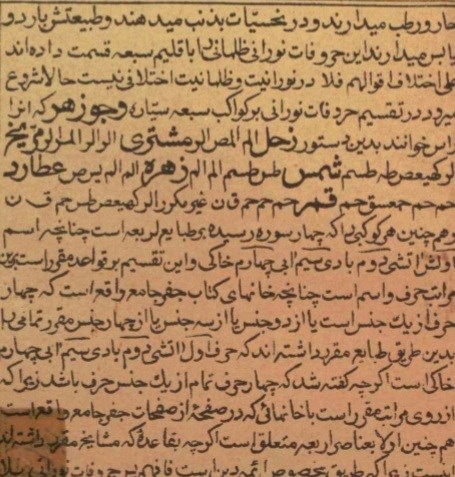 حار و رطب میدارند و در نحسیّات بذنب میدهند و طبیعتش بارد و
یابس میدارند این حروفات نورانی ظلمانی را باقلیم سبعه قسمت داده‌اند
علی اختلاف اقوالهم فلا در نورانیت و ظلمانیت اختلافی نیست حالا شروع
میرود در تقسیم حروفات نورانی بر کواکب سبعه سیاره وجوزهر که انرا
راس خوانند بدین دستور زحل الم المص الر مشتری الر الر المر الر مریخ
الر کهیعص طه طسم شمس طس طسم الم الم زهره الم الم یس ص عطارد
حم حم حمعسق حم قمر حم حم حم ق ن غیر مکرر الر کهیعص طس حم ق ن
وهم چنین هر کوکبی را که چهار سوره رسیده بر طبایع اربعه است چنانچه اسم
اول اتشی دوم بادی سیم ابی چهارم خاکی و این تقسیم بر قواعد مقرر است
مراتب حرف و اسم است چنانچه خانهای کتاب جفر جامع واقع است که چهار
حرف از یک جنس است یا از دو جنس یا از سه جنس یا از چهار جنس مقرر تمامی را
بدین طریق طبایع مقرر داشته اند که حرف اول اتشی دوم بادی سیم ابی چهارم
خاکی است اگرچه گفته شد که چهار حرف تمام از یک جنس حرف باشد زیرا که
از روی مراتب مقرر است با خانهائی که در صفحهٔ از صفحات جفر جامع واقع است
هم چنین اولا بعناصر اربعه متعلق است اگرچه بقاعدهٔ که مشایخ مقرر داشته‌اند
اینست زیرا که طریق مخصوص ائمه دین است فافهم پس حروفات نورانی